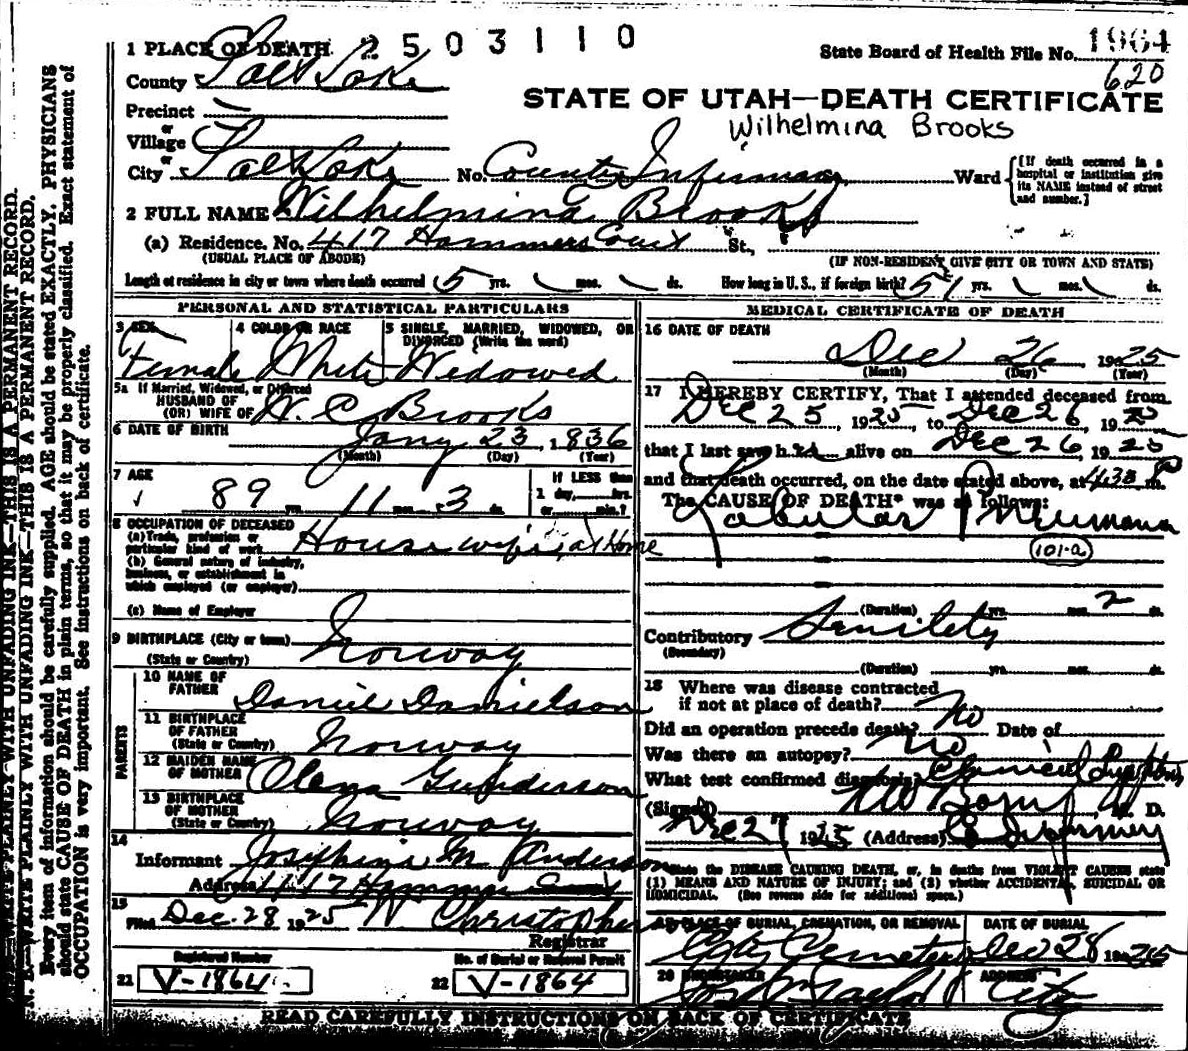 1 PLACE OF DEATH 2503110
State Board of Health File No. 1964
620
County Salt Lake
STATE OF UTAH—DEATH CERTIFICATE
Precinct
Wilhelmina Brooks
or
Village
or
City Salt Lake No. County Infirmary Ward [If death occurred in a hospital or institution give its NAME instead of street and number.]
2 FULL NAME Wilhelmina Brooks
(a) Residence. No. 417 Hammers Court St.,
(USUAL PLACE OF ABODE) (IF NON-RESIDENT GIVE CITY OR TOWN AND STATE)
Length of residence in city or town where death occurred 5 yrs. mos. ds. How long in U.S., if foreign birth? 51 yrs. mos. ds.
PERSONAL AND STATISTICAL PARTICULARS
3 SEX 4 COLOR OR RACE 5 SINGLE, MARRIED, WIDOWED, OR DIVORCED (Write the word)
Female White Widowed
5a If Married, Widowed, or Divorced
HUSBAND OF
(OR) WIFE OF W. C. Brooks
6 DATE OF BIRTH Jany 23, 1836
(Month) (Day) (Year)
7 AGE If LESS than
89 yrs. 11 mos. 3 ds. 1 day, hrs.
or min.?
8 OCCUPATION OF DECEASED
(a) Trade, profession or
particular kind of work Housewife, at Home
(b) General nature of industry,
business, or establishment in
which employed (or employer)
(c) Name of Employer
9 BIRTHPLACE (City or town)
(State or Country) Norway
PARENTS
10 NAME OF
FATHER Daniel Danielson
11 BIRTHPLACE
OF FATHER
(State or Country) Norway
12 MAIDEN NAME
OF MOTHER Olena Gunderson
13 BIRTHPLACE
OF MOTHER
(State or Country) Norway
14
Informant Josephine M. Anderson
Address 417 Hammer Court
15
Filed Dec. 28 1925 W Christopher
Registrar
Registered Number No. of Burial or Removal Permit
21 V-1864 22 V-1864
MEDICAL CERTIFICATE OF DEATH
16 DATE OF DEATH
Dec 26 1925
(Month) (Day) (Year)
17 I HEREBY CERTIFY, That I attended deceased from
Dec 25, 1925, to Dec 26, 1925
that I last saw h alive on Dec 26, 1925
and that death occurred, on the date stated above, at 4:38 P m.
The CAUSE OF DEATH* was as follows:
Lobular Pneumonia
101-a
(Duration) yrs. mos. 2 ds.
Contributory Senility
(Secondary)
(Duration) yrs. mos. ds.
18 Where was disease contracted
if not at place of death?
Did an operation precede death? No Date of
Was there an autopsy? No
What test confirmed diagnosis? Clinical Symptoms
(Signed) M. D.
Dec 27 1925 (Address) Co Infirmary
*State the DISEASE CAUSING DEATH, or, in deaths from VIOLENT CAUSES state
(1) MEANS AND NATURE OF INJURY; and (2) whether ACCIDENTAL, SUICIDAL OR
HOMICIDAL. (See reverse side for additional space.)
19 PLACE OF BURIAL, CREMATION, OR REMOVAL DATE OF BURIAL
City Cemetery Dec 28 1925
20 UNDERTAKER ADDRESS
Jos Wm Taylor City
READ CAREFULLY INSTRUCTIONS ON BACK OF CERTIFICATE
N. B.—WRITE PLAINLY WITH UNFADING INK—THIS IS A PERMANENT RECORD.
Every item of information should be carefully supplied. AGE should be stated EXACTLY. PHYSICIANS
should state CAUSE OF DEATH in plain terms, so that it may be properly classified. Exact statement of
OCCUPATION is very important. See instructions on back of certificate.